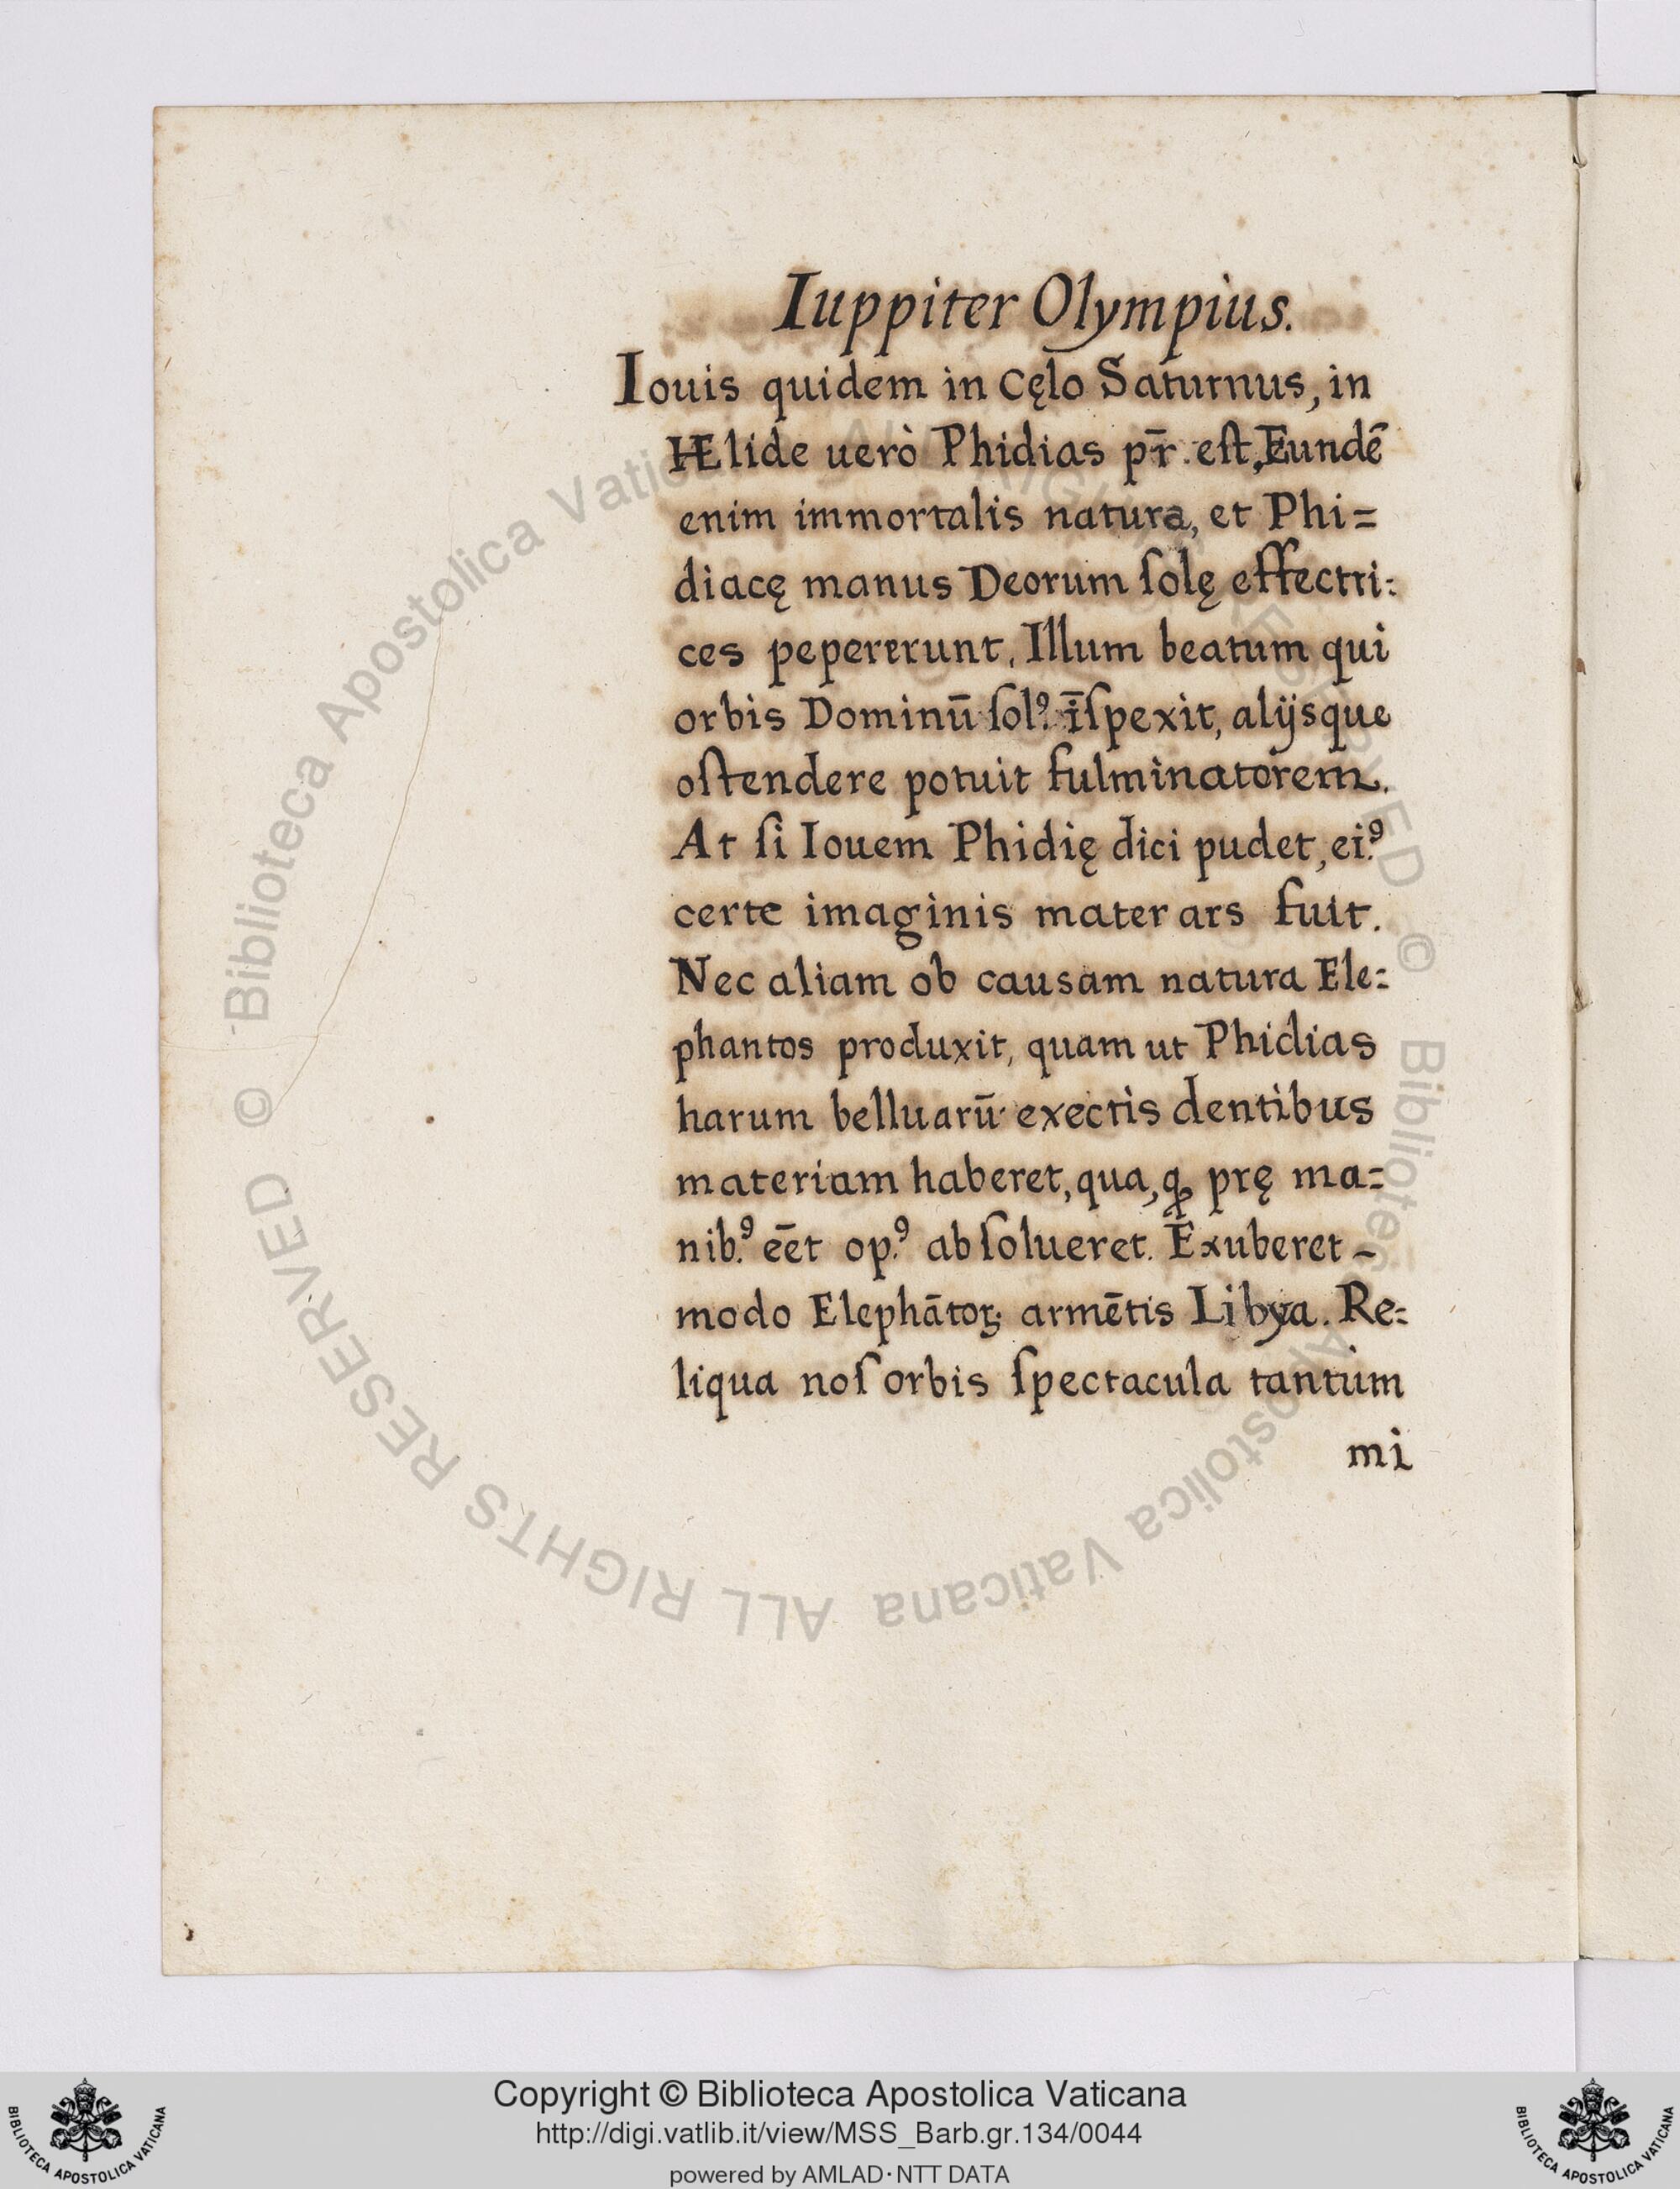 Iuppiter Olympius.
Iouis quidem in cęlo Saturnus, in
HElide uerò Phidias pr̄. eſt, Eundē
enim immortalis natura, et Phi=
diacę manus Deorum ſolę effectri=
ces pepererunt. Illum beatum qui
orbis Dominū ſolꝰ. īſpexit, alijsque
oſtendere potuit fulminatorem.
At ſi Iouem Phidię dici pudet, eiꝰ.
certe imaginis mater ars fuit.
Nec aliam ob causam natura Ele=
phantos produxit, quam ut Phidias
harum belluarū exectis dentibus
materiam haberet, qua, ꝙ prę ma=
nibꝰ. eēt opꝰ. abſolueret. Exuberet -
modo Elephātoꝝ armētis Libya. Re=
liqua noſ orbis ſpectacula tantùm
mi
© Biblioteca Apostolica Vaticana ALL RIGHTS RESERVED © Biblioteca Apostolica Vaticana ALL RIGHTS RESERVED
Copyright © Biblioteca Apostolica Vaticana
http://digi.vatlib.it/view/MSS_Barb.gr.134/0044
powered by AMLAD·NTT DATA
BIBLIOTECA APOSTOLICA VATICANA
BIBLIOTECA APOSTOLICA VATICANA